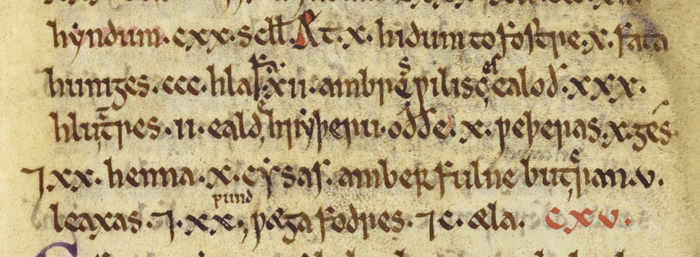 hyndum·cxx·scłł. Æt·x·hidum to fostre·x·fata
huniges·ccc·hlafa·xii·ambres ƿilisces ealoð·xxx·
hluttres·ii·ealde hryþeru·oððe·x·ƿeþeras·x·gés
⁊xx·henna·x·cysas·amber fulne buteran·v·
leaxas·⁊·xx·pund ƿæga fodres·⁊c·æla. cxv.